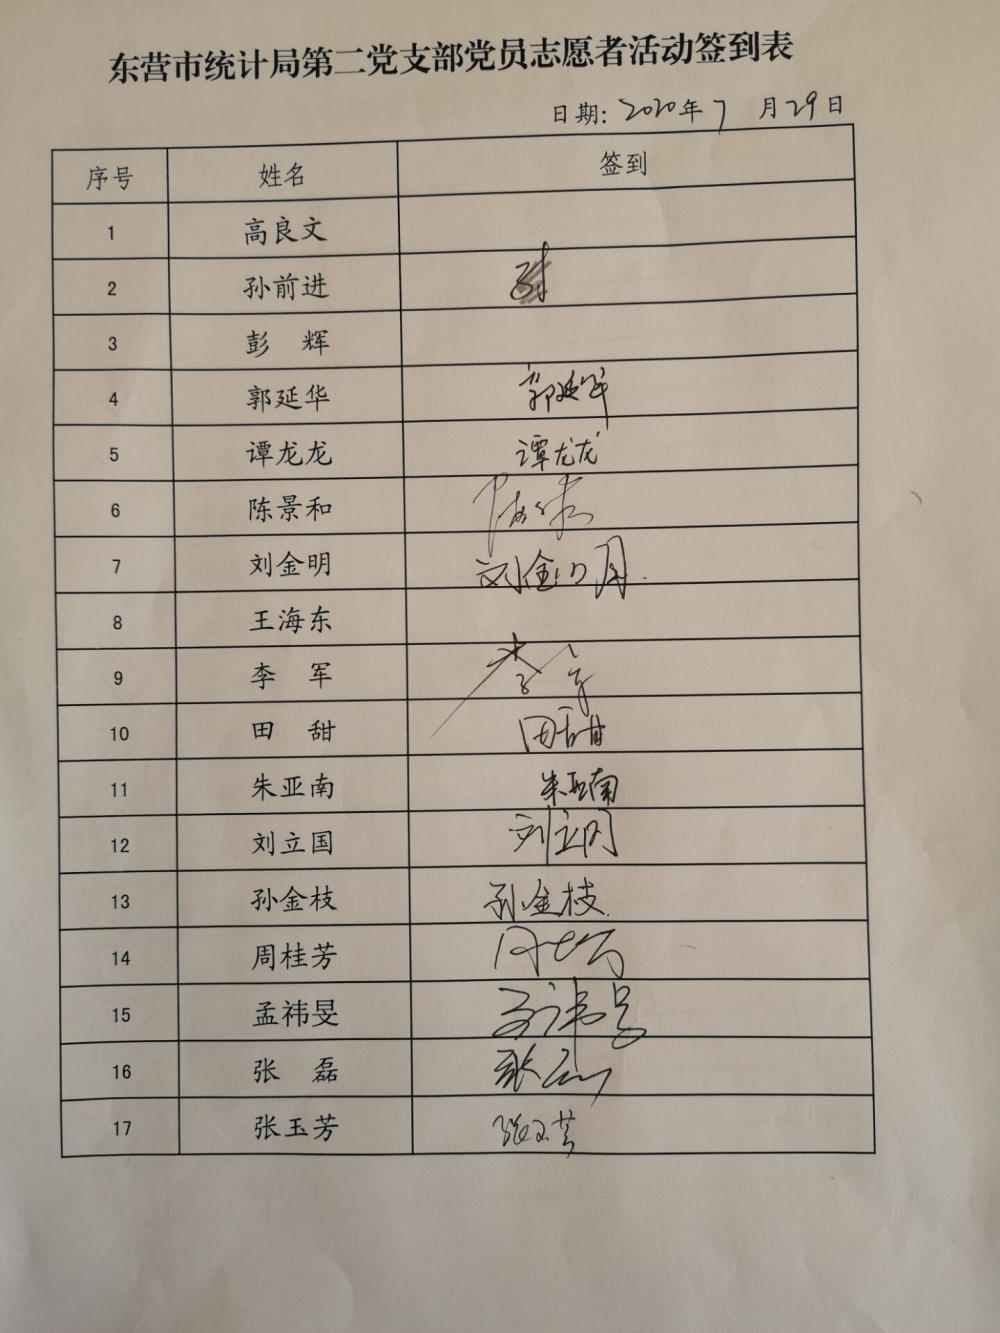 东营市统计局第二党支部党员志愿者活动签到表
日期: 2020年7月29日
序号 姓名 签到
1 高良文
2 孙前进
3 彭 辉
4 郭延华 郭延华
5 谭龙龙 谭龙龙
6 陈景和
7 刘金明 刘金明
8 王海东
9 李 军 李军
10 田 甜 田甜
11 朱亚南 朱亚南
12 刘立国 刘立国
13 孙金枝 孙金枝
14 周桂芳
15 孟祎旻
16 张 磊 张磊
17 张玉芳 张玉芳